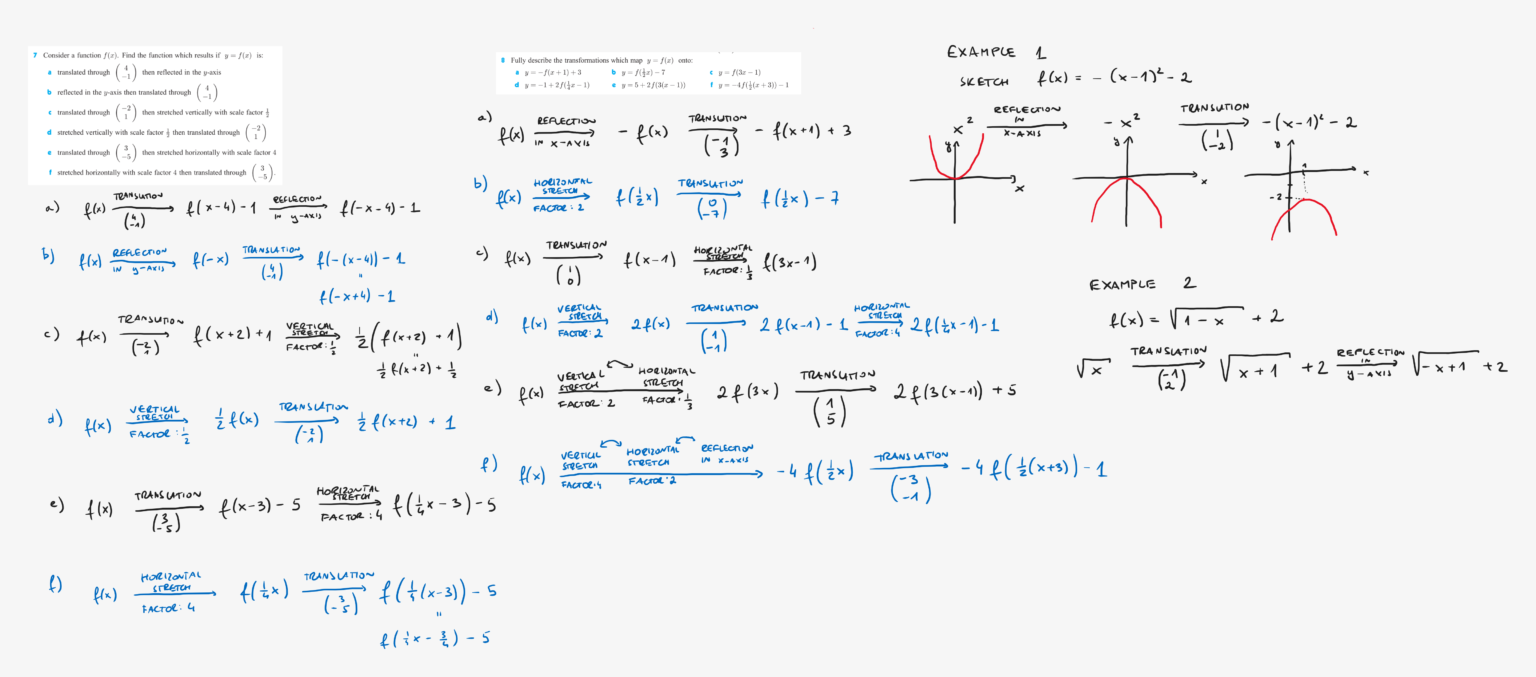 7 Consider a function f(x). Find the function which results if y = f(x) is:
a translated through (4 -1) then reflected in the y-axis
b reflected in the y-axis then translated through (4 -1)
c translated through (-2 1) then stretched vertically with scale factor 1/2
d stretched vertically with scale factor 1/2 then translated through (-2 1)
e translated through (3 -5) then stretched horizontally with scale factor 4
f stretched horizontally with scale factor 4 then translated through (3 -5).
a) f(x) TRANSLATION (4 -1) → f(x-4) - 1 REFLECTION IN y-AXIS → f(-x-4) - 1
b) f(x) REFLECTION IN y-AXIS → f(-x) TRANSLATION (4 -1) → f(-(x-4)) - 1
"
f(-x+4) - 1
c) f(x) TRANSLATION (-2 1) → f(x+2) + 1 VERTICAL STRETCH FACTOR: 1/2 → 1/2 (f(x+2) + 1)
"
1/2 f(x+2) + 1/2
d) f(x) VERTICAL STRETCH FACTOR: 1/2 → 1/2 f(x) TRANSLATION (-2 1) → 1/2 f(x+2) + 1
e) f(x) TRANSLATION (3 -5) → f(x-3) - 5 HORIZONTAL STRETCH FACTOR: 4 → f(1/4 x - 3) - 5
f) f(x) HORIZONTAL STRETCH FACTOR: 4 → f(1/4 x) TRANSLATION (3 -5) → f(1/4 (x-3)) - 5
"
f(1/4 x - 3/4) - 5
8 Fully describe the transformations which map y = f(x) onto:
a y = -f(x+1) + 3 b y = f(1/2 x) - 7 c y = f(3x - 1)
d y = -1 + 2f(1/4 x - 1) e y = 5 + 2f(3(x - 1)) f y = -4f(1/2 (x+3)) - 1
a) f(x) REFLECTION IN X-AXIS → - f(x) TRANSLATION (-1 3) → - f(x+1) + 3
b) f(x) HORIZONTAL STRETCH FACTOR: 2 → f(1/2 x) TRANSLATION (0 -7) → f(1/2 x) - 7
c) f(x) TRANSLATION (1 0) → f(x-1) HORIZONTAL STRETCH FACTOR: 1/3 → f(3x-1)
d) f(x) VERTICAL STRETCH FACTOR: 2 → 2f(x) TRANSLATION (1 -1) → 2f(x-1) - 1 HORIZONTAL STRETCH FACTOR: 4 → 2f(1/4 x - 1) - 1
e) f(x) VERTICAL STRETCH FACTOR: 2 HORIZONTAL STRETCH FACTOR: 1/3 2f(3x) TRANSLATION (1 5) → 2f(3(x-1)) + 5
f) f(x) VERTICAL STRETCH FACTOR: 4 HORIZONTAL STRETCH FACTOR: 2 REFLECTION IN X-AXIS → -4f(1/2 x) TRANSLATION (-3 -1) → -4f(1/2 (x+3)) - 1
EXAMPLE 1
SKETCH f(x) = - (x-1)² - 2
x² REFLECTION IN X-AXIS → - x² TRANSLATION (1 -2) → -(x-1)² - 2
y x
y x
y x 1 -2
EXAMPLE 2
f(x) = √(1 - x) + 2
√x TRANSLATION (-1 2) → √(x+1) + 2 REFLECTION IN y-AXIS → √(-x+1) + 2